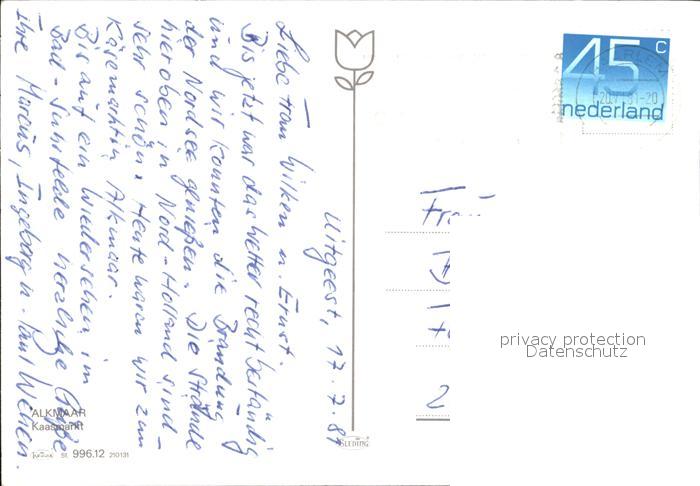 Uitgeest, 17.7.81
Liebe Frau Wilken u. Ernst.
Bis jetzt war das Wetter recht beständig
und wir konnten die Brandung
der Nordsee genießen. Die Strände
hier oben in Nord-Holland sind
sehr schön. Heute waren wir zum
Käsemarkt in Alkmaar.
Bis auf ein Wiedersehen im
Bad-Suhrfelde herzliche Grüße
Ihre Marcus, Ingeborg u. Paul Wenen.
Frau
45 c
nederland
privacy protection
Datenschutz
ALKMAAR
Kaasmarkt
st 996.12 210131